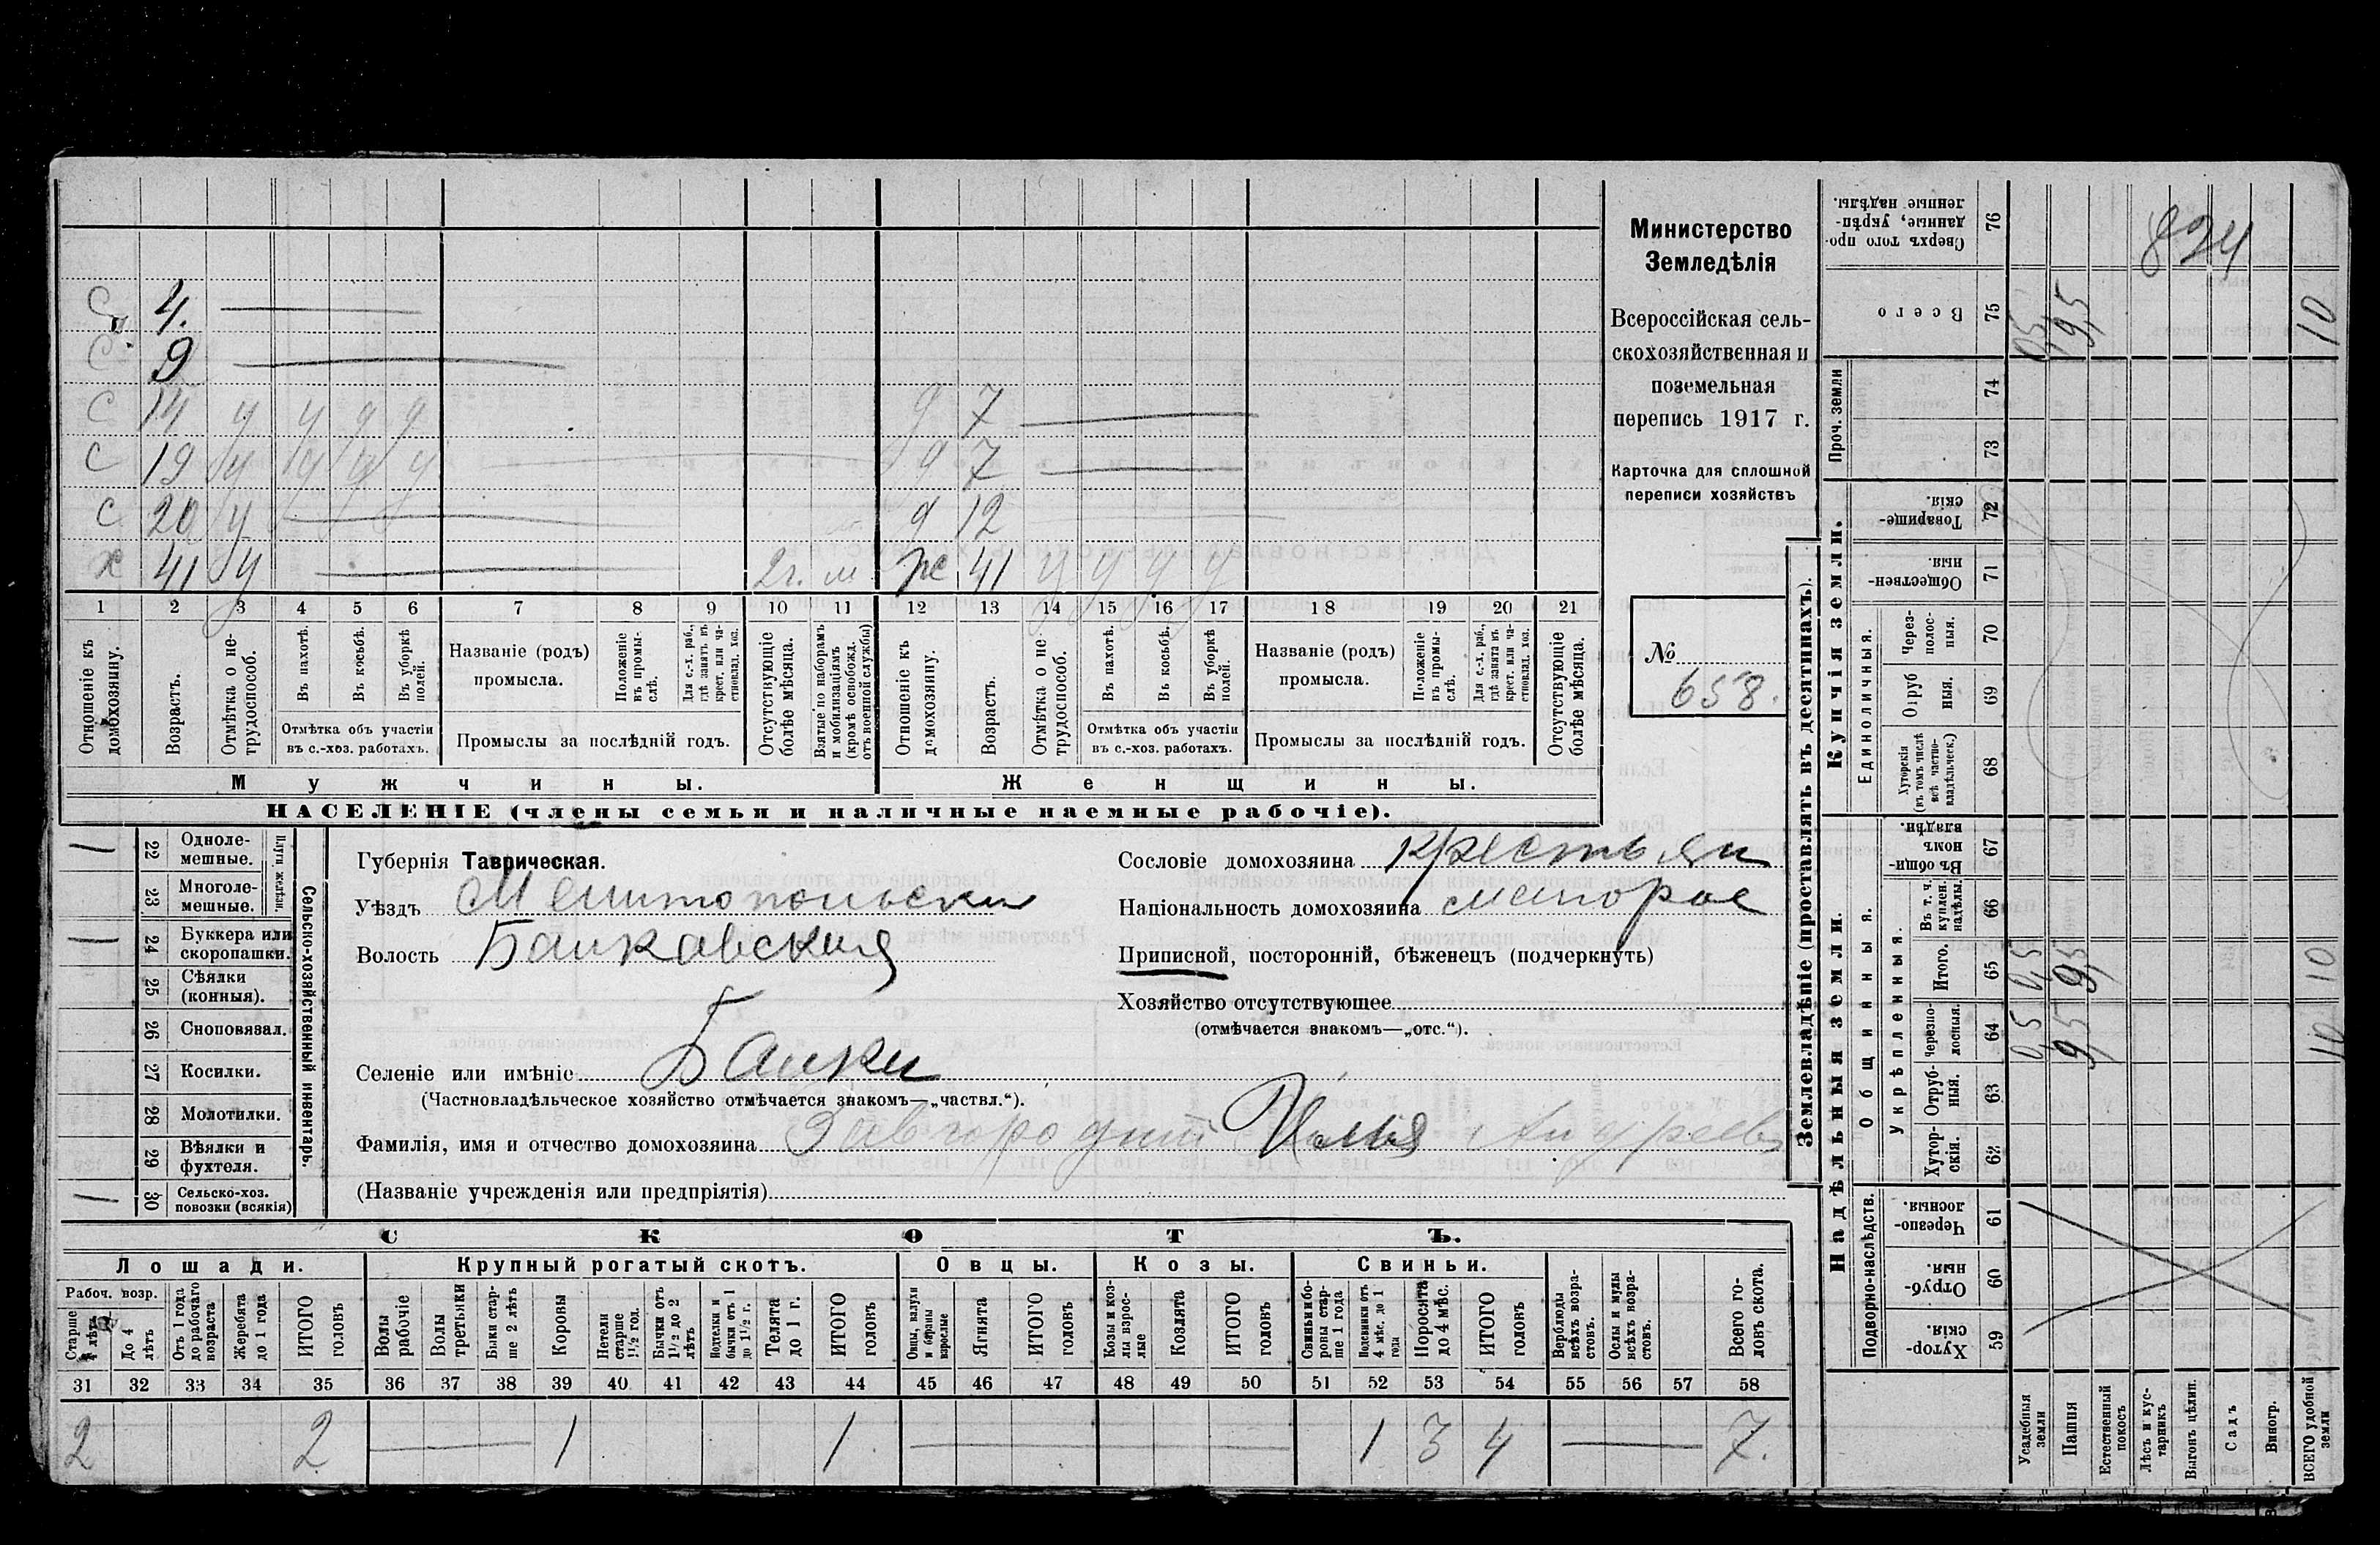 С 4.
С 9
С 14 у у у у д 7
С 19 у у у у д 7
С 20 у д 12
х 41 у 2г. м ж 41 у у у у
1 2 3 4 5 6 7 8 9 10 11 12 13 14 15 16 17 18 19 20 21
Отношеніе къ домохозяину.
Возрастъ.
Отмѣтка о не-
трудоспособ.
Въ пахотѣ.
Въ косьбѣ.
Въ уборкѣ
полей.
Отмѣтка объ участіи
въ с.-хоз. работахъ.
Названіе (родъ)
промысла.
Положеніе
въ промы-
слѣ.
Для с.-х. раб.,
гдѣ занятъ въ
крест. или ча-
стновлад. хоз.
Промыслы за послѣдній годъ.
Отсутствующіе
болѣе мѣсяца.
Взятые по наборамъ
и мобилизаціямъ
(кромѣ освобожд.
отъ военной службы)
Отношеніе къ
домохозяину.
Возрастъ.
Отмѣтка о не
трудоспособ.
Въ пахотѣ.
Въ косьбѣ.
Въ уборкѣ
полей.
Отмѣтка объ участіи
въ с.-хоз. работахъ.
Названіе (родъ)
промысла.
Положеніе
въ промы-
слѣ.
Для с.-х. раб.,
гдѣ занята въ
крест. или ча-
стновлад. хоз.
Промыслы за послѣдній годъ.
Отсутствующіе
болѣе мѣсяца.
Мужчины.
Женщины.
НАСЕЛЕНІЕ (члены семьи и наличные наемные рабочіе).
Министерство
Земледѣлія
Всероссійская сель-
скохозяйственная и
поземельная
перепись 1917 г.
Карточка для сплошной
переписи хозяйствъ
№
658.
1 22 Одноле-
мешные.
23 Многоле-
мешные.
Плуги желѣзн.
1 24 Буккера или
скоропашки.
25 Сѣялки
(конныя).
26 Сноповязал.
27 Косилки.
28 Молотилки.
29 Вѣялки и
фухтеля.
1 30 Сельско-хоз.
повозки (всякія)
Сельско-хозяйственный инвентарь.
Губернія Таврическая.
Уѣздъ Мелитопольски
Волость Балковская
Селеніе или имѣніе Балки
(Частновладѣльческое хозяйство отмѣчается знакомъ—„частвл.“).
Фамилія, имя и отчество домохозяина Завгородний Илья Андреев
(Названіе учрежденія или предпріятія)
Сословіе домохозяина крестьян
Національность домохозяина малорос
Приписной, посторонній, бѣженецъ (подчеркнуть)
Хозяйство отсутствующее
(отмѣчается знакомъ—„отс.“).
СКОТЪ.
Лошади. Крупный рогатый скотъ. Овцы. Козы. Свиньи.
Рабоч. возр.
Старше
4 лѣтъ
До 4
лѣтъ
Отъ 1 года
до рабочаго
возраста
Жеребята
до 1 года
ИТОГО
головъ
Волы
рабочіе
Волы
третьяки
Быки стар-
ше 2 лѣтъ
Коровы
Нетели
старше
1½ год.
Бычки отъ
1½ до 2
лѣтъ
Подтелки и
бычки отъ 1
до 1½ г.
Телята
до 1 г.
ИТОГО
головъ
Овцы, валухи
и бараны
взрослые
Ягнята
ИТОГО
головъ
Козы и коз-
лы взрос-
лые
Козлята
ИТОГО
головъ
Свиньи и бо-
ровы стар-
ше 1 года
Подсвинки отъ
4 мѣс. до 1
года
Поросята
до 4 мѣс.
ИТОГО
головъ
Верблюды
всѣхъ возра-
стовъ.
Ослы и мулы
всѣхъ возра-
стовъ.
Всего го-
ловъ скота.
31 32 33 34 35 36 37 38 39 40 41 42 43 44 45 46 47 48 49 50 51 52 53 54 55 56 57 58
2 2 1 1 1 3 4 7.
Землевладѣніе (проставлять въ десятинахъ).
Надѣльныя земли.
Купчія земли.
Проч. земли
Подворно-наслѣдств.
Общинныя.
Укрѣпленныя.
Единоличныя.
Сверхъ того про-
данные, укрѣп-
ленные надѣлы. 76 824
Всего 75 0,5 9,5 10
74
73
Товарище-
скія. 72
Обществен-
ныя. 71
Через-
полос-
ныя. 70
Отруб
ныя. 69
Хуторскія
(въ томъ числѣ
всѣ частно-
владѣльческ.) 68
Въ общи-
номъ
владѣн. 67
Въ т. ч.
куплен.
надѣлы. 66
Итого. 65 0,5 9,5 10
Черезпо-
лосныя. 64 0,5 9,5 10
Отруб-
ныя. 63
Хутор-
скія. 62
Черезпо-
лосныя. 61
Отруб-
ныя. 60
Хутор-
скія. 59
Усадебныя
земли
Пашня
Естественный
покосъ
Лѣсъ и кус-
тарникъ
Выгонъ цѣлин.
Садъ
Виногр.
ВСЕГО удобной
земли